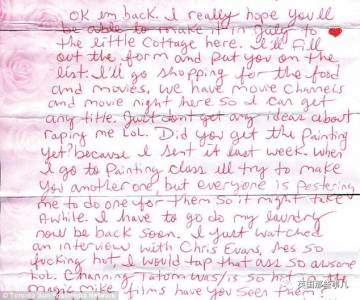 OK im back. I really hope you'll
be able to make it in July to
the little Cottage here. I'll Fill
out the form and put you on the
list. I'll go shopping for the food
and movies. We have movie Channels
and movie night here so I can get
any title. Just don't get any ideas about
raping me Lol. Did you get the Painting
yet? because I sent it last week. When
I go to Painting class ill try to make
you another one, but everyone is pestering
me to do one for them so it might take
awhile. I have to go do my laundry
now be back soon. I just watched
an interview with Chris Evans, hes so
fucking hot I would tap that ass so awsome
Lol. Channing Tatum was/is so hot in the
magic mike films have you seen them
© Toronto Sun/Postmedia Network
英国那些事儿